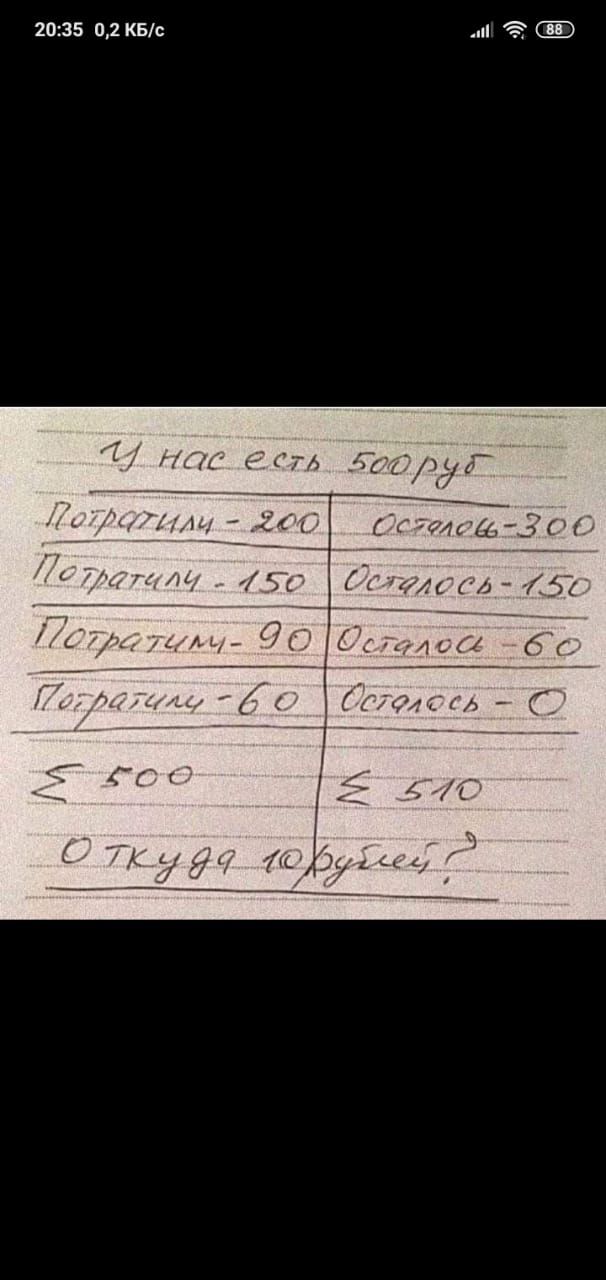 20:35 0,2 КБ/с 88
У нас есть 500 руб
Потратили - 200 Осталось - 300
Потратили - 150 Осталось - 150
Потратили - 90 Осталось - 60
Потратили - 60 Осталось - 0
Σ 500 Σ 510
Откуда 10 рублей?